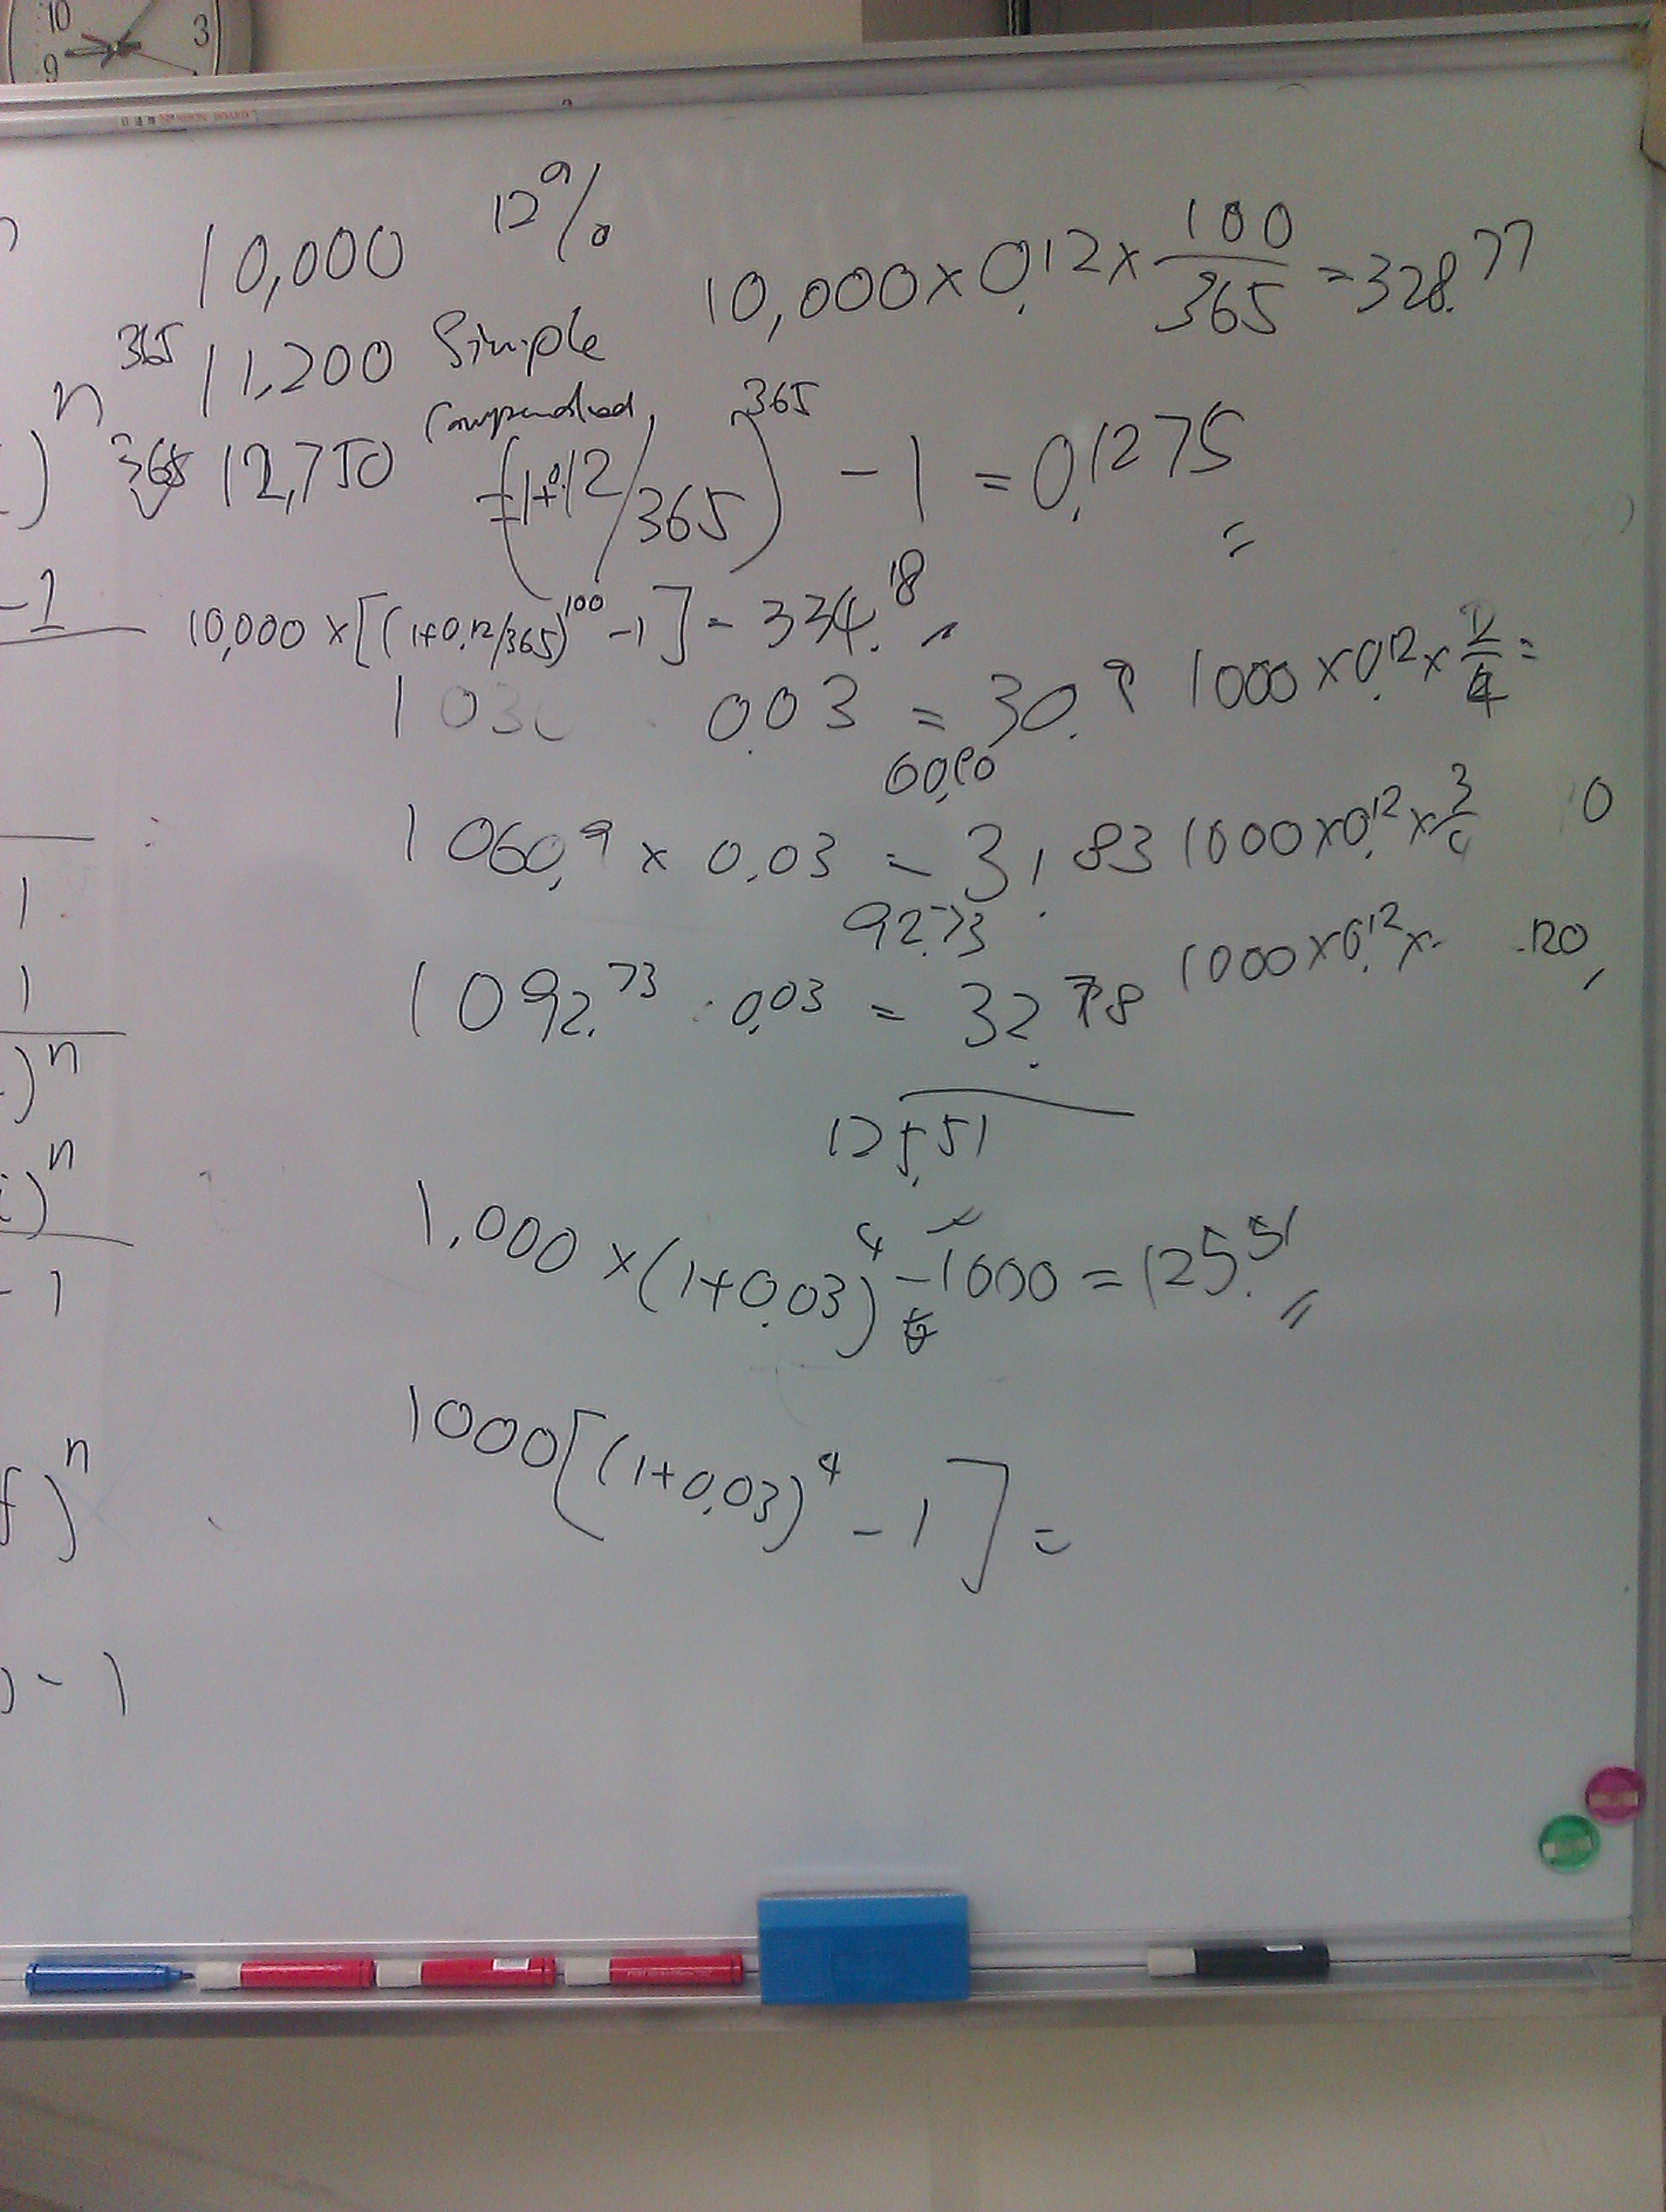 10 3
9
10,000 12%
10,000 × 0.12 × 100/365 = 328.77
365 11,200 Simple
n
365 12,750 Compounded
=(1+0.12/365)^365 - 1 = 0.1275
-1
10,000 × [(1+0.12/365)^100 - 1] = 334.18
1030 0.03 = 30.9 1000 × 0.12 × 2/4 =
60.90
1060.9 × 0.03 = 31.83 1000 × 0.12 × 3/4 0
92.73
1092.73 0.03 = 32.78 1000 × 0.12 × 120
125.51
1,000 × (1+0.03)^4 - 1000 = 125.51
1000[(1+0.03)^4 - 1] =
1
1
)^n
i)^n
- 1
f)^n
) - 1